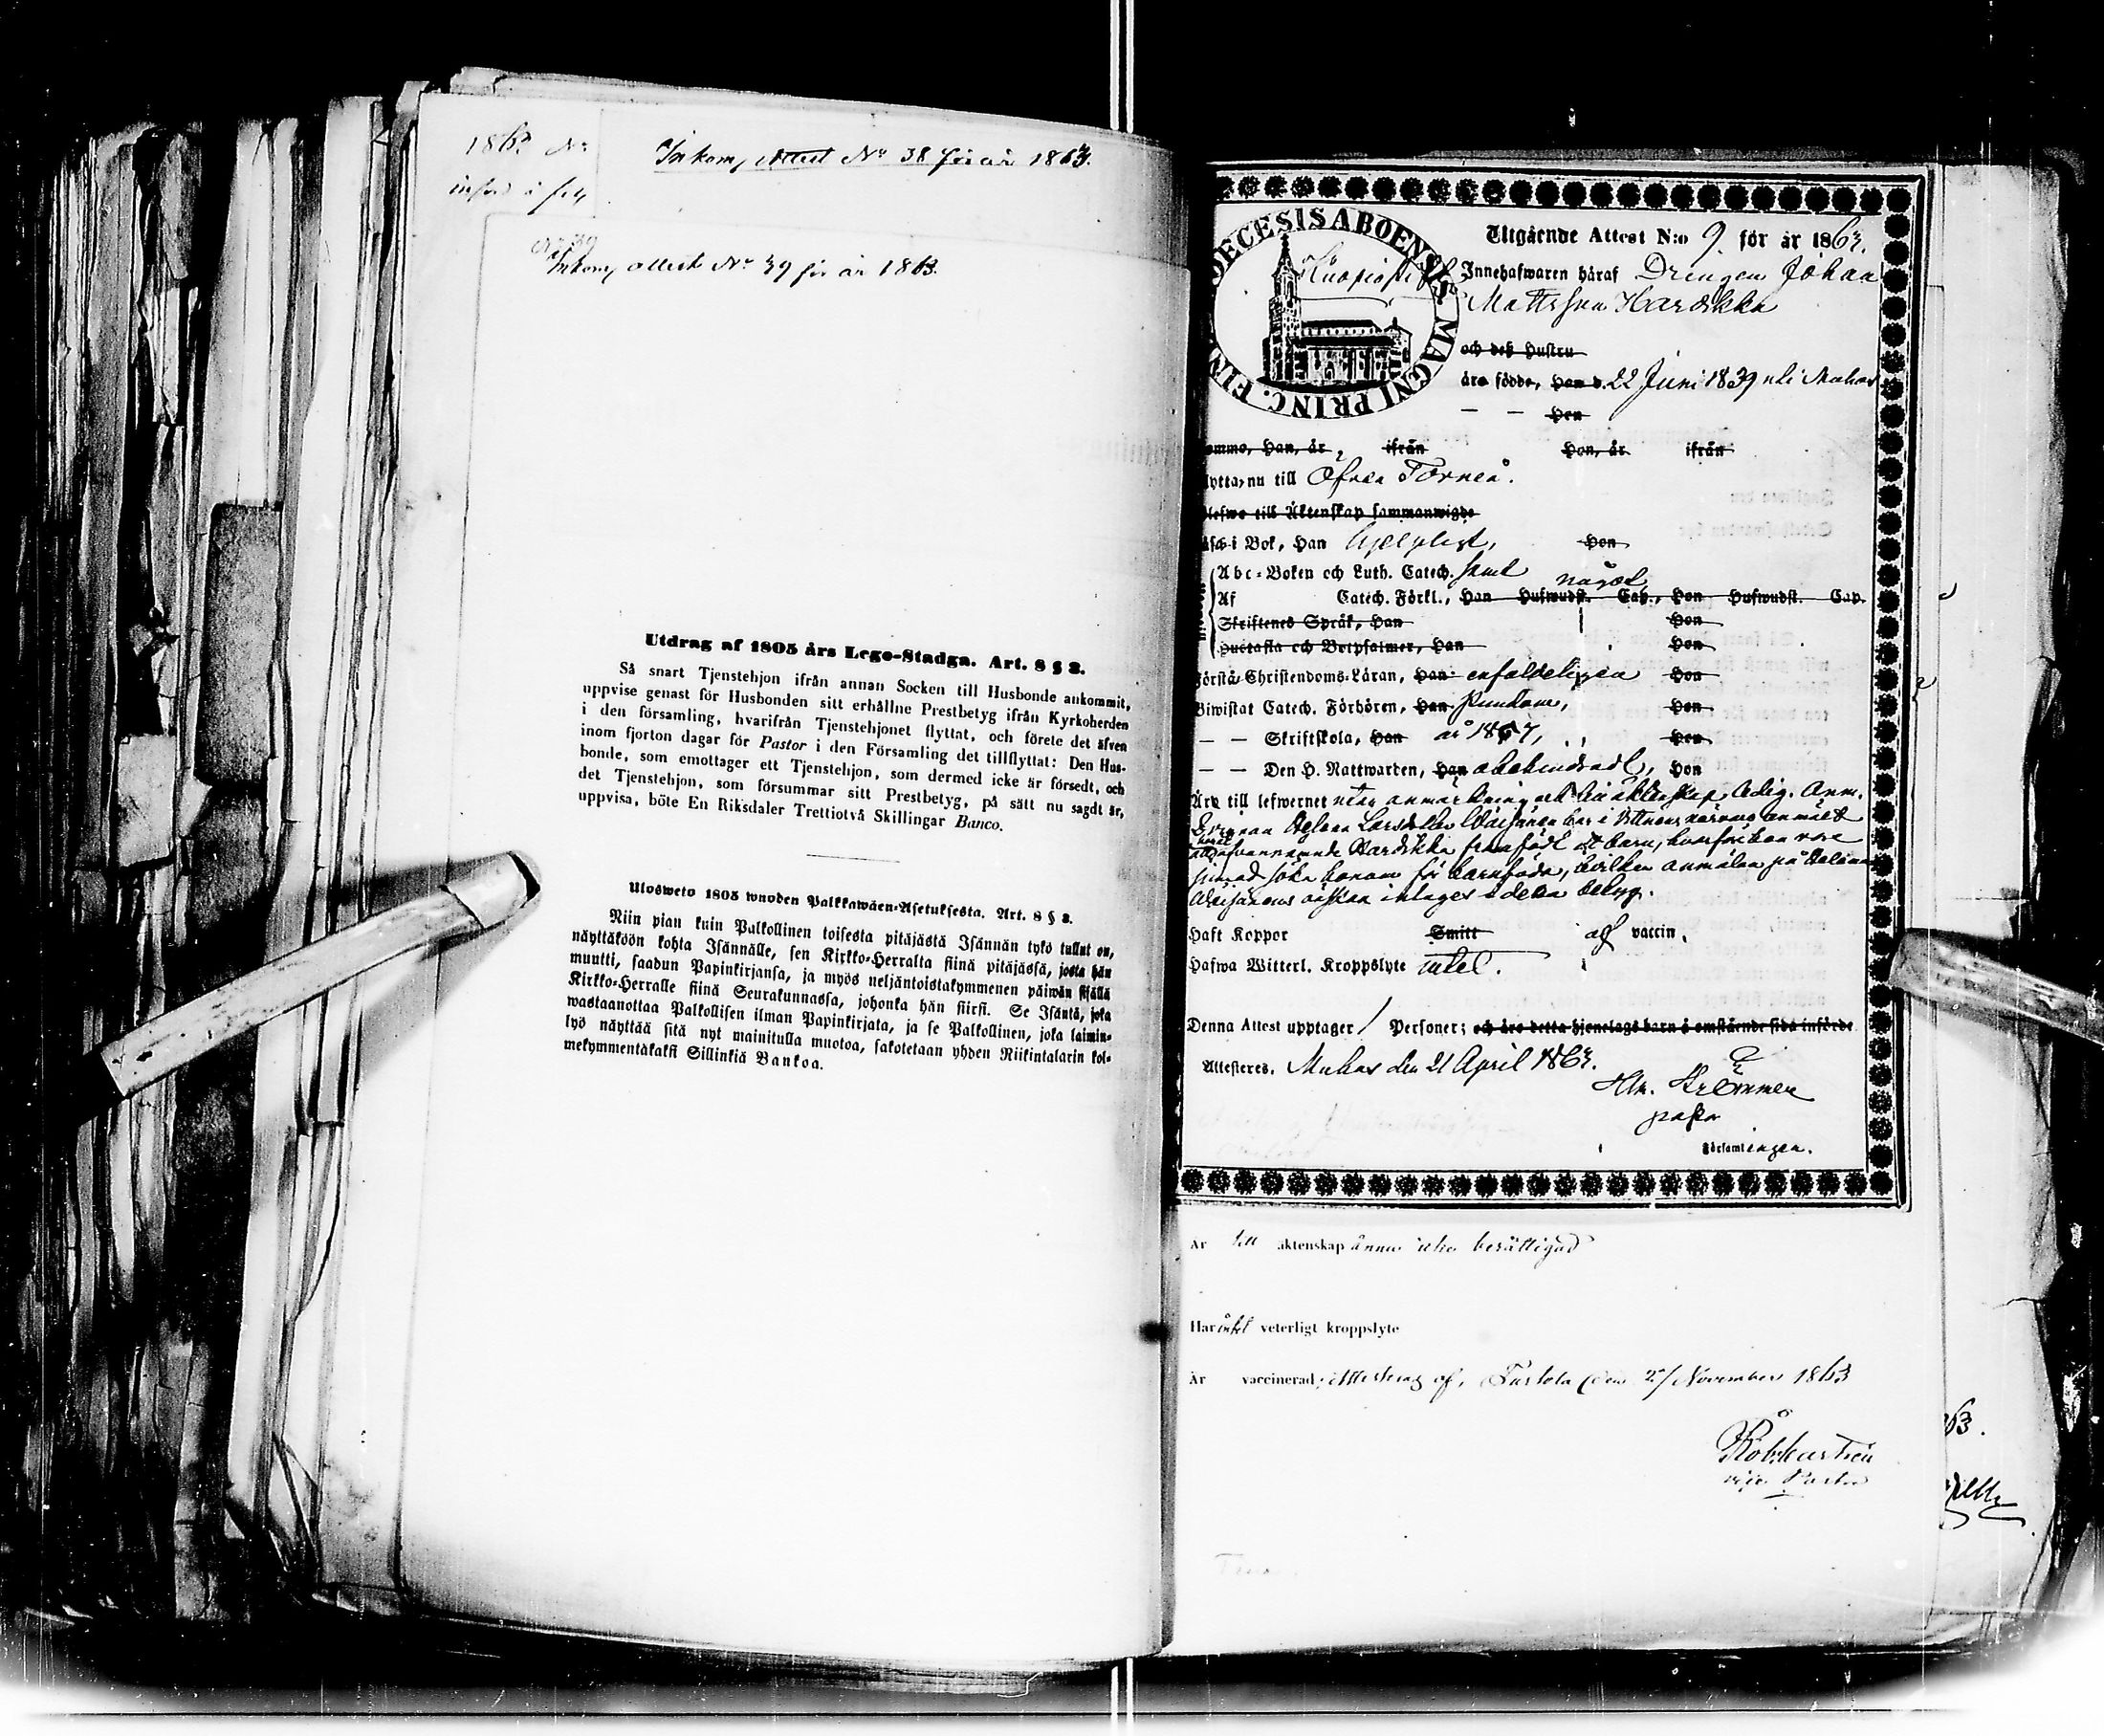 1863 No
införd å sid
Inkom, Attest No 38 för år 1863.
No 39
Inkom, attest No 39 för år 1863.
Utdrag af 1805 års Lego-Stadga. Art. 8 § 3.
Så snart Tjenstehjon ifrån annan Socken till Husbonde ankommit,
uppvise genast för Husbonden sitt erhållne Prestbetyg ifrån Kyrkoherden
i den församling, hvarifrån Tjenstehjonet flyttat, och förete det äfven
inom fjorton dagar för Pastor i den Församling det tillflyttat: Den Hus-
bonde, som emottager ett Tjenstehjon, som dermed icke är försedt, och
det Tjenstehjon, som försummar sitt Prestbetyg, på sätt nu sagdt är,
uppvisa, böte En Riksdaler Trettiotvå Skillingar Banco.
Ulosweto 1805 wuoden Palkkawäen-Asetuksesta. Art. 8 § 3.
Niin pian kuin Palkollinen toisesta pitäjästä Isännän tykö tullut on,
näyttäköön kohta Isännälle, sen Kirkko-Herralta siinä pitäjässä, josta hän
muutti, saadun Papinkirjansa, ja myös neljäntoistakymmenen päiwän sisällä
Kirkko-Herralle siinä Seurakunnassa, johonka hän siirsi. Se Isäntä, joka
wastaanottaa Palkollisen ilman Papinkirjata, ja se Palkollinen, joka laimin-
lyö näyttää sitä nyt mainitulla muotoa, sakotetaan yhden Riikintalarin kol-
mekymmentäkaksi Sillinkiä Bankoa.
DECESIS ABOENSIS MAGNI PRINC. FIN
Kuopio stift
Utgående Attest N:o 9 för år 1863.
Innehafwaren häraf Drängen Johan
Mattsson Hardikka
och deß Hustru
äro födde, Han d. 22 Juni 1839 uti Muhos
— — Hon
ommo, Han, år, ifrån Hon, år ifrån
lytta, nu till Öfver Torneå.
lefwe till Äktenskap sammanwigde
äsa i Bok, Han hjelpligt, Hon
Abc-Boken och Luth. Catech. samt något
Af Catech. Förkl., Han Hufwudst. Cap., Hon Hufwudst. Cap.
Skriftenes Språk, Han Hon
Hustafla och Botpsalmer, Han Hon
Förstå Christendoms-Läran, Han enfaldeligen Hon
Biwistat Catech. Förhören, Han stundom, Hon
— — Skriftskola, Han år 1857, Hon
— — Den H. Nattwarden, Han obehindradt, Hon
Äro till lefwernet utan anmärkning och till äktenskap ledig. Anm.
Helena Larsdotter Wäisänen har i Vittnens närvaro anmält
ofvannämnde Hardikka framfödt ett barn, hvarföre hon vore
sinnad söka honom för barnföda, hvilken anmälan på Helena
Wäisänens önskan intages i detta betyg.
Haft Koppor Smitt af vaccin.
Hafwa Witterl. Kroppslyte intet.
Denna Attest upptager 1 Personer; och äro detta hjonelags barn å omstående sida införde
Attesteres. Muhos den 21 April 1863.
pastor
Församlingen.
Är till äktenskap ännu icke berättigad
Har intet veterligt kroppslyte
Är vaccinerad; Attesteras af, Turtola den 2/ November 1863
vice Pastor
63.